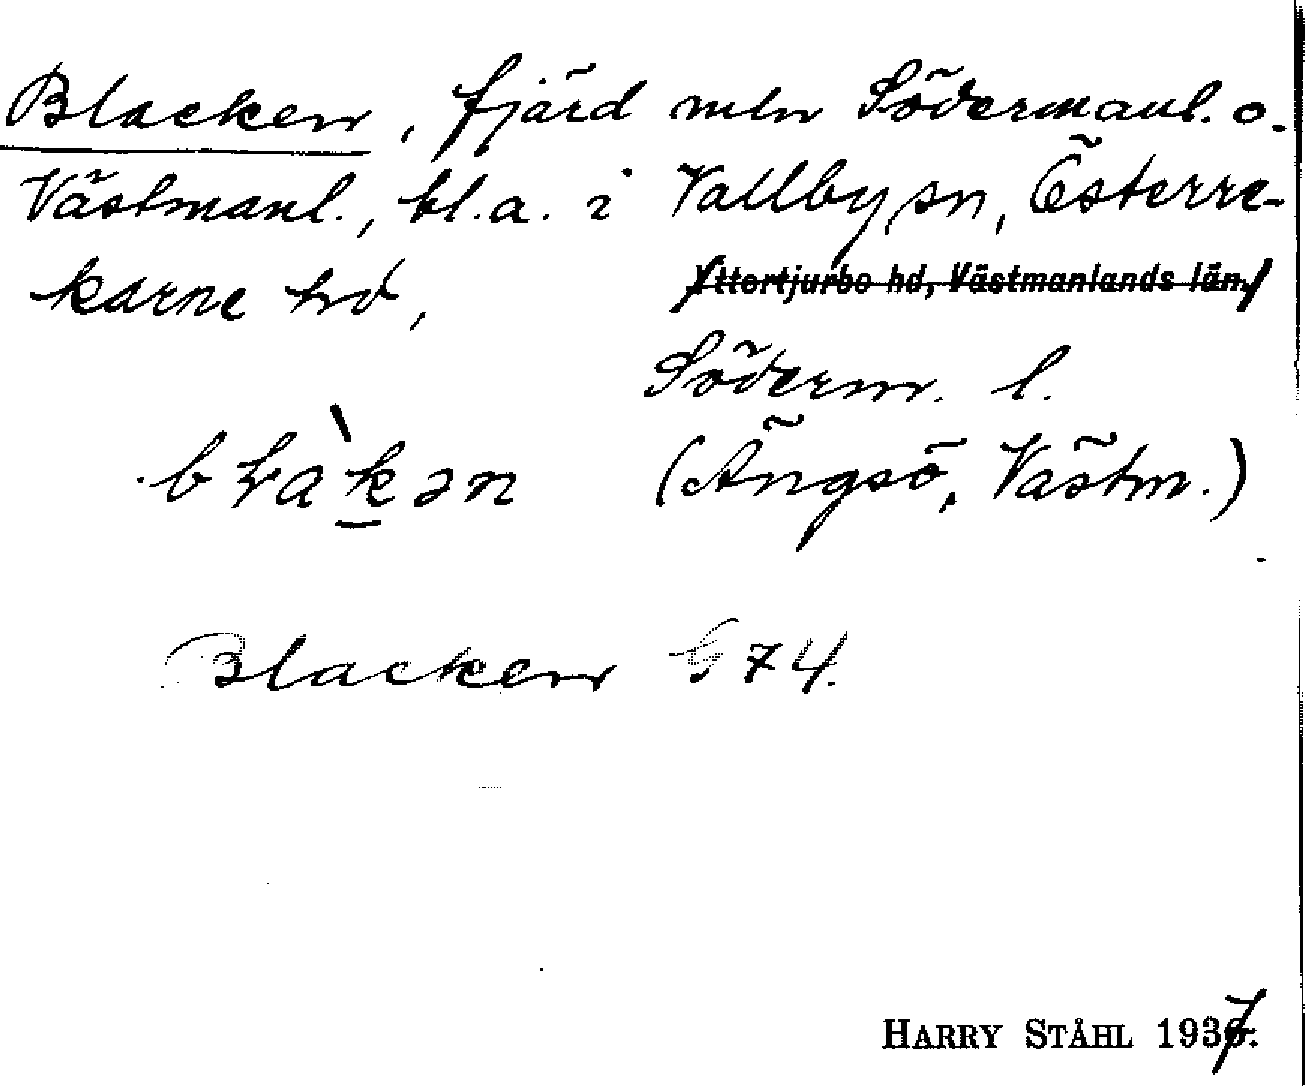 Blacken, fjärd mln Södermanl. o.
Västmanl., bl.a. i Vallby sn, Österre-
karne hd, Yttertjurbo hd, Västmanlands län.
Söderm. l.
(Ängsö, Västm.)
Blacken G 74.
HARRY STÅHL 1937.